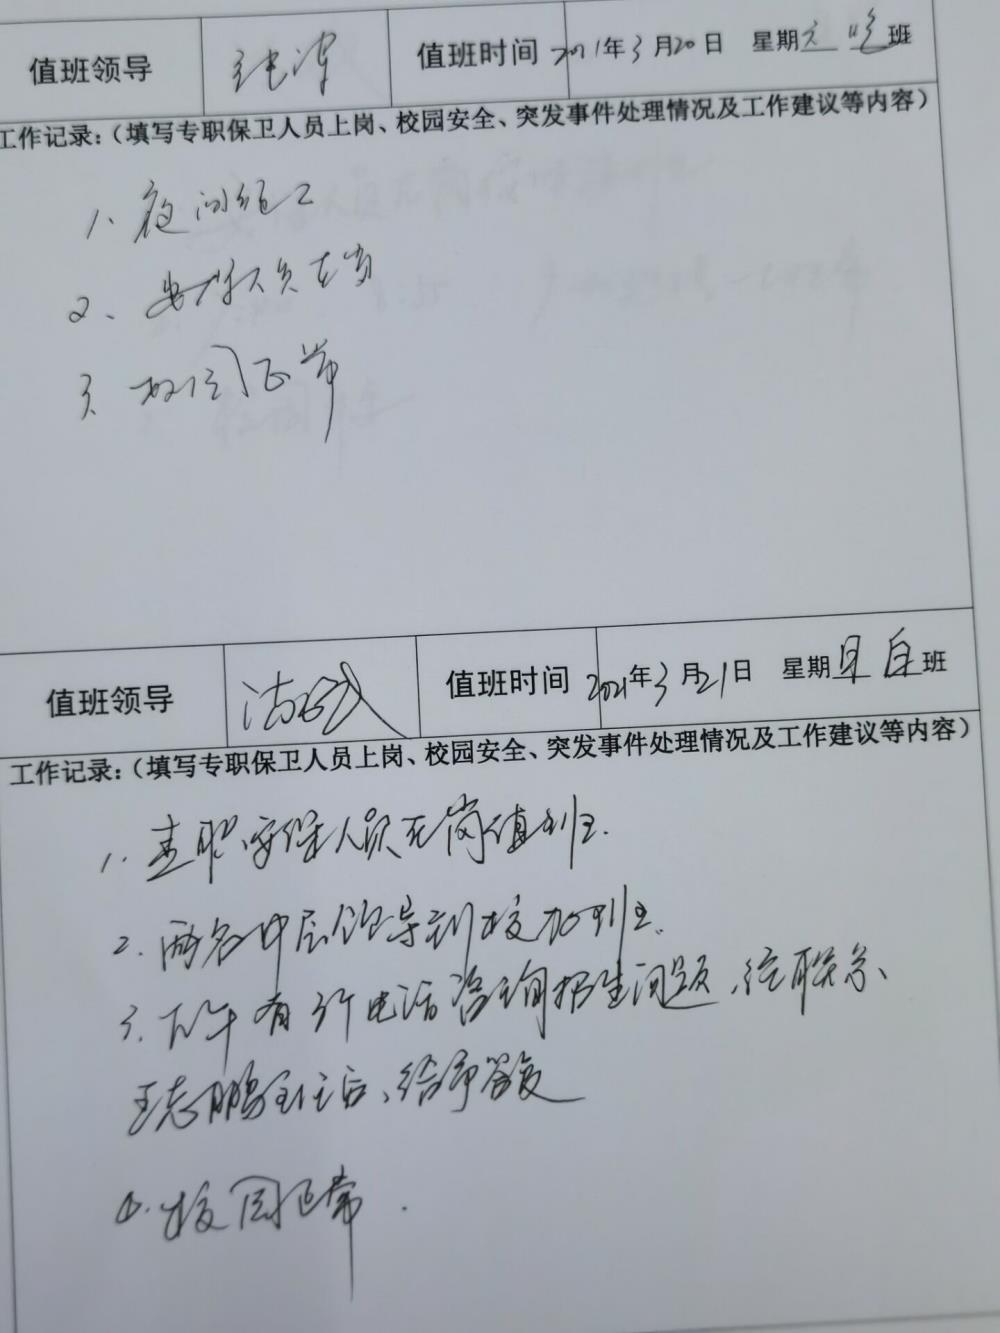 值班领导 值班时间 2021年3月20日 星期六 晚班
工作记录：（填写专职保卫人员上岗、校园安全、突发事件处理情况及工作建议等内容）
1、夜间施工
2、安保人员在岗
3、校园正常
值班领导 值班时间 2021年3月21日 星期日 白班
工作记录：（填写专职保卫人员上岗、校园安全、突发事件处理情况及工作建议等内容）
1.专职安保人员在岗值班.
2.两名中层领导到校加班.
3.下午有外电话咨询招生问题,经联系、
王志鹏主任后、给予答复
4.校园正常.